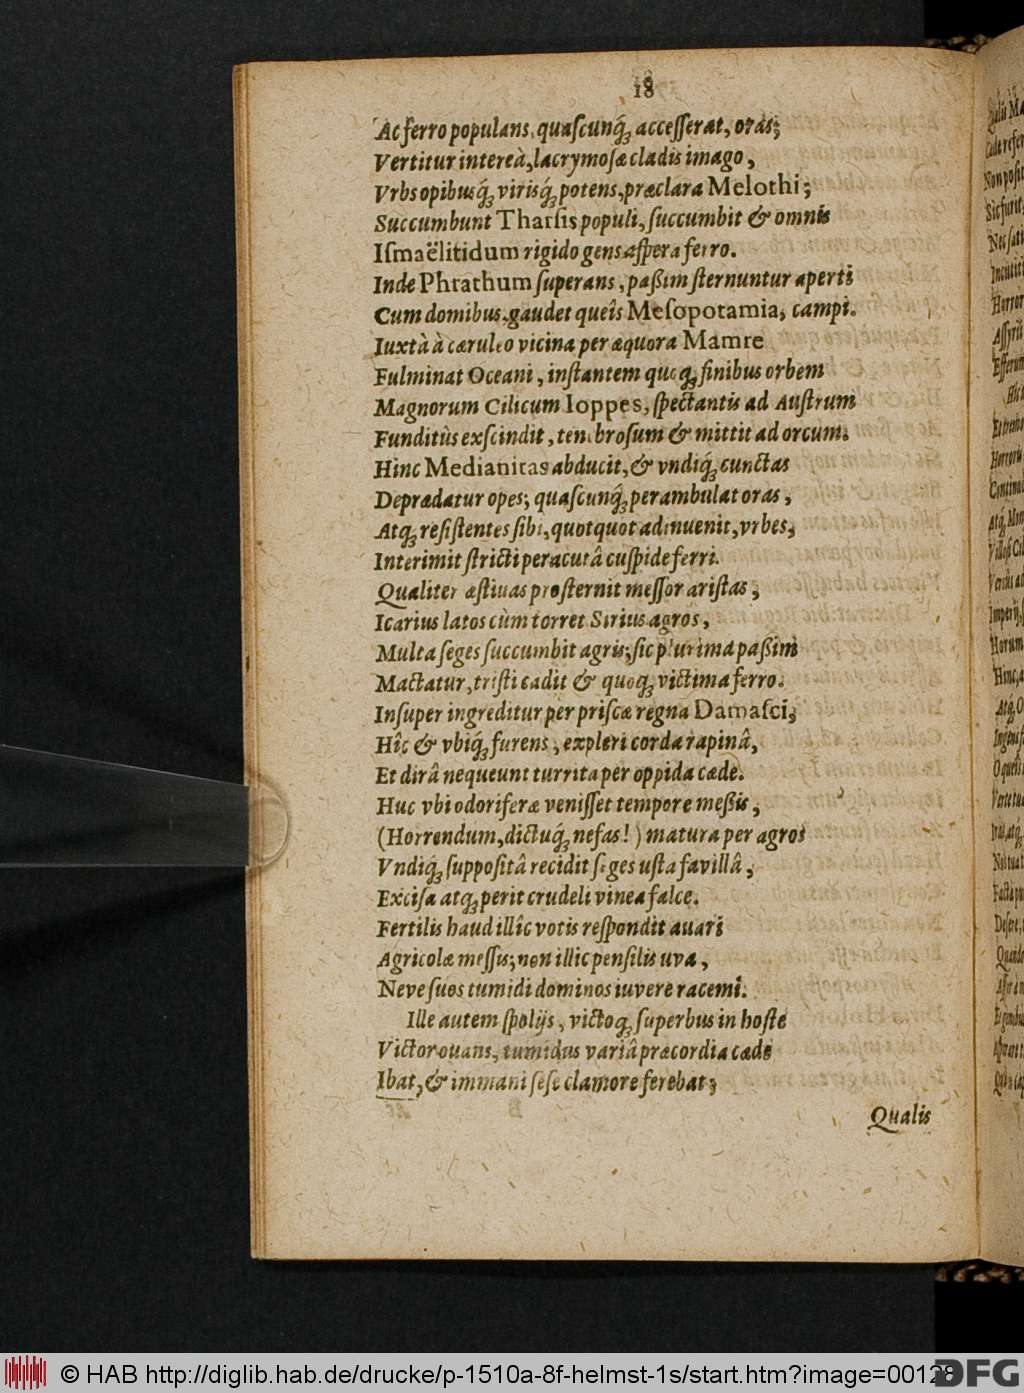 18
Ac ferro populans, quaſcunq́ꝫ acceſſerat, oras;
Vertitur intereà, lacrymoſæ cladis imago,
Vrbs opibusq́ꝫ virisq́ꝫ potens, præclara Melothi;
Succumbunt Tharſis populi, ſuccumbit & omnis
Iſmaëlitidum rigido gens aſpera ferro.
Inde Phrathum ſuperans, paßim ſternuntur aperti
Cum domibus, gaudet queîs Meſopotamia, campi.
Iuxtà à cæruleo vicina per æquora Mamre
Fulminat Oceani, inſtantem quoqꝫ finibus orbem
Magnorum Cilicum Ioppes, ſpectantis ad Auſtrum
Funditùs exſcindit, tenebroſum & mittit ad orcum.
Hinc Medianitas abducit, & vndiq́ꝫ cunctas
Deprædatur opes; quaſcunq́ꝫ perambulat oras,
Atqꝫ reſiſtentes ſibi, quotquot adinuenit, vrbes,
Interimit ſtricti peracutâ cuſpide ferri.
Qualiter æſtiuas proſternit meſſor ariſtas,
Icarius latos cùm torret Sirius agros,
Multa ſeges ſuccumbit agris; ſic plurima paßim
Mactatur, triſti cadit & quoqꝫ victima ferro.
Inſuper ingreditur pèr priſcæ regna Damaſci,
Hîc & vbiq́ꝫ furens, expleri corda rapinâ,
Et dirâ nequeunt turrita per oppida cæde.
Huc vbi odoriferæ veniſſet tempore meßis,
(Horrendum, dictuq́ꝫ nefas!) matura per agros
Vndiq́ꝫ ſuppoſitâ recidit ſeges uſta favillâ,
Exciſa atqꝫ perit crudeli vinea falce.
Fertilis haud illîc votis reſpondit auari
Agricolæ meſſis; non illic penſilis uva,
Neve ſuos tumidi dominos iuvere racemi.
Ille autem ſpolijs, victoqꝫ ſuperbus in hoſte
Victor ouans, tumidus variâ præcordia cæde
Ibat, & immani ſeſe clamore ferebat;
Qualis
© HAB http://diglib.hab.de/drucke/p-1510a-8f-helmst-1s/start.htm?image=00128
DFG